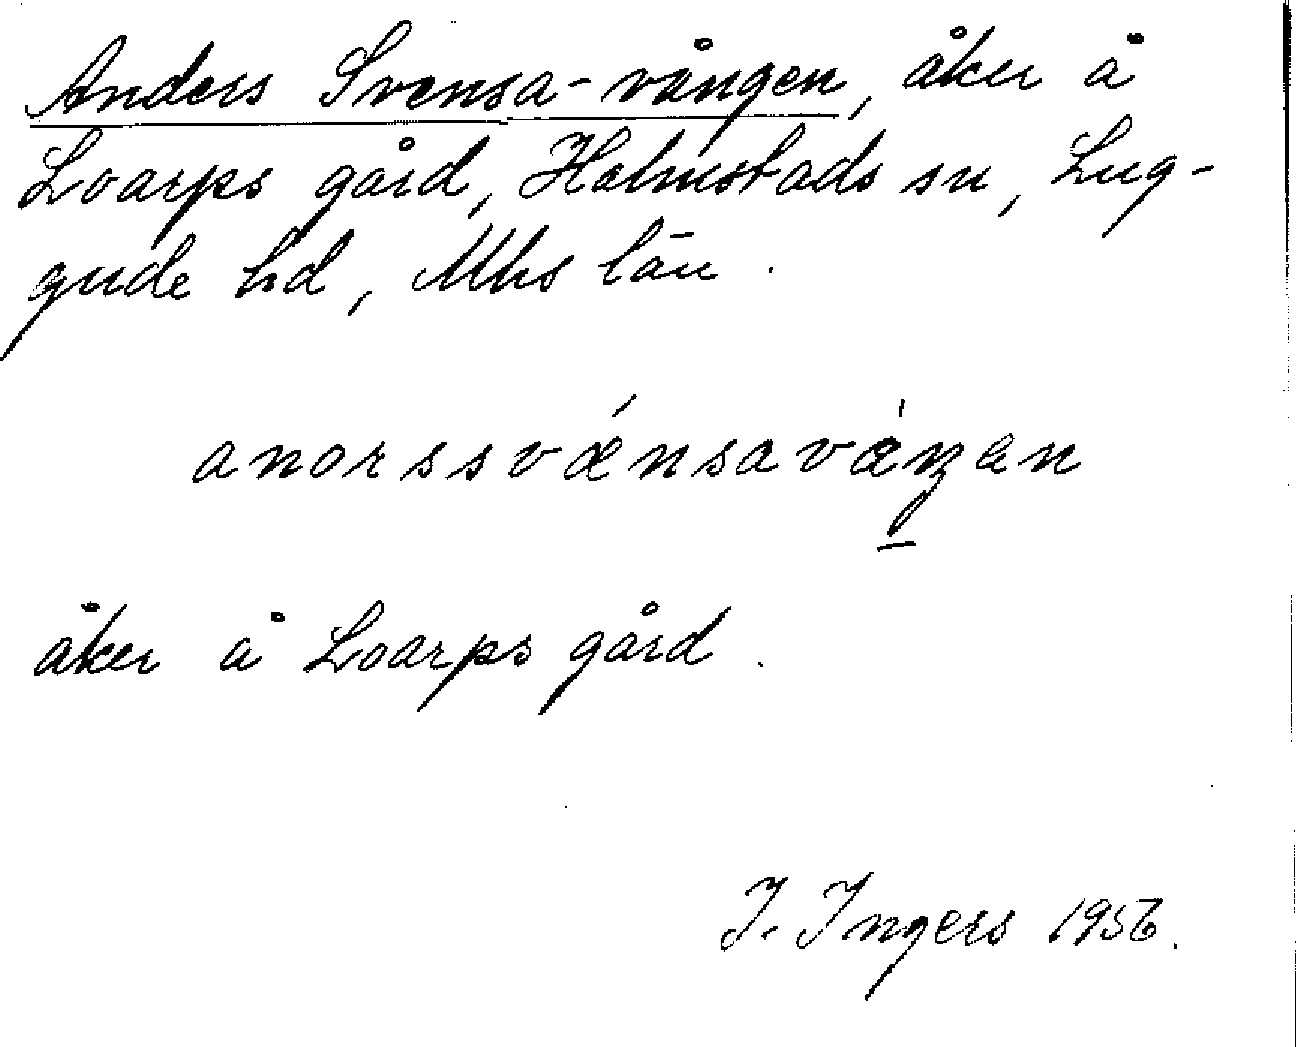 Anders Svensa-vången, åker å
Loarps gård, Halmstads sn, Lug-
gude hd, Mhs län.
anorssvǽnsaváŋen
åker å Loarps gård.
I. Ingers 1956.